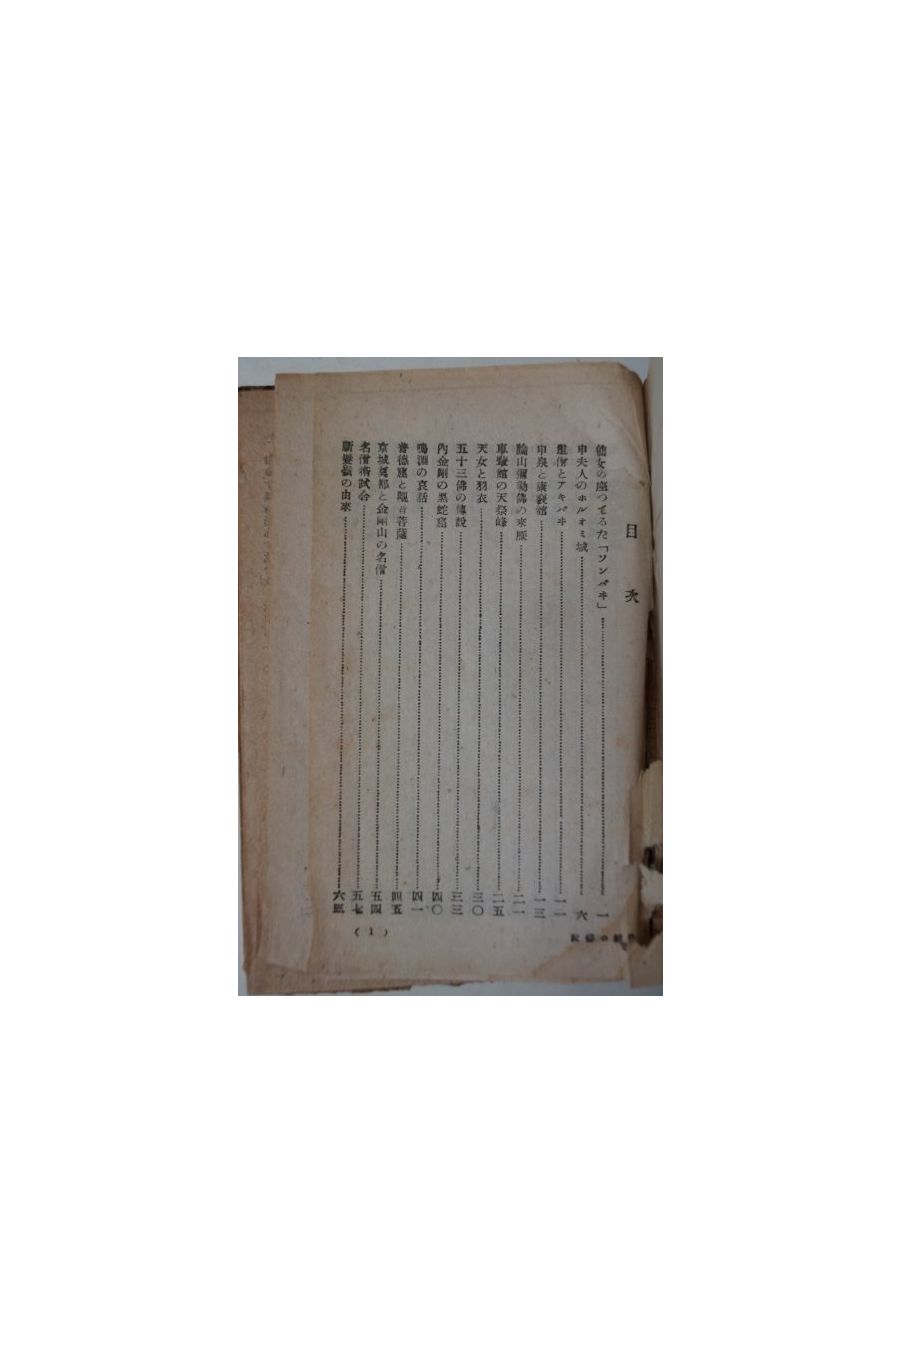 目次
仙女の座つてゐた「ソンバヰ」 一
申夫人のホルオミ城 六
聖僧とアキバヰ 一一
申泉と 館 一三
山彌勒佛の來歴 二一
車 館の天祭峰 二五
天女と羽衣 三〇
五十三佛の傳説 三三
內金剛の黑蛇窟 四〇
鳴淵の哀話 四一
普德窟と觀音菩薩 四五
京城 郎と金剛山の名僧 五四
名僧術試合 五七
斷髮嶺の由來 六三
(1)